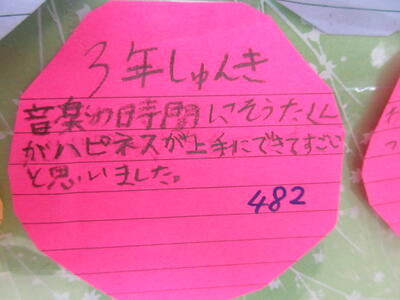 3年しゅんき
音楽の時間にそうたくん
がハピネスが上手にできてすごい
と思いました。
482